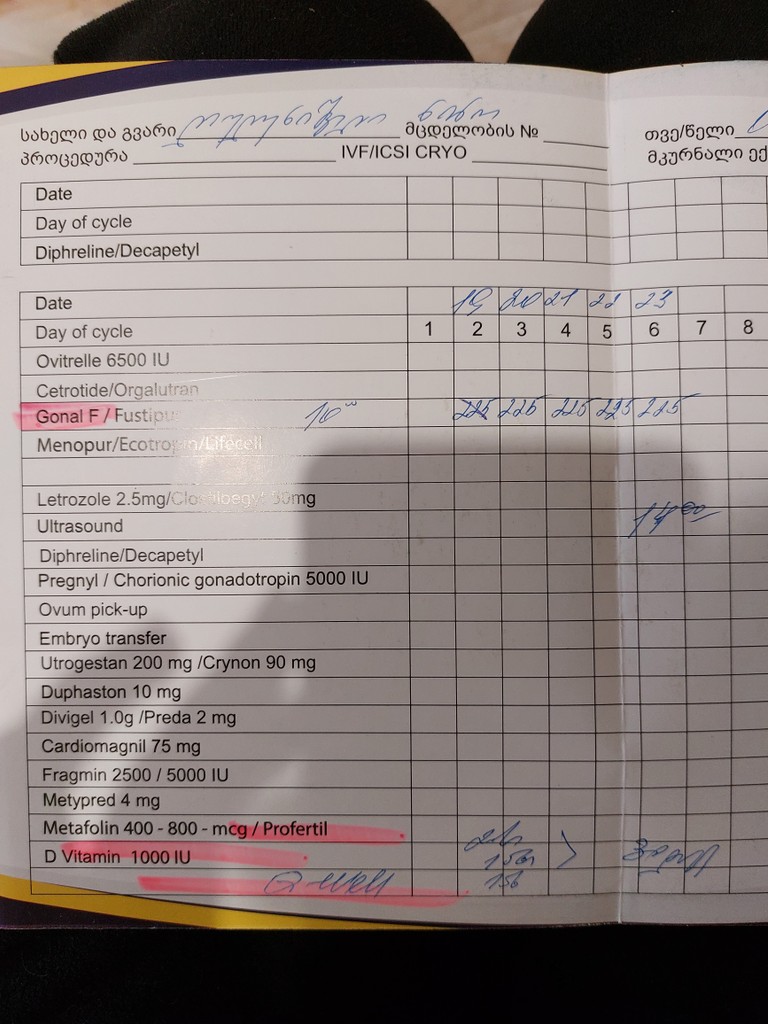 სახელი და გვარი მცდელობის №
თვე/წელი
პროცედურა IVF/ICSI CRYO
მკურნალი ექ
Date
Day of cycle
Diphreline/Decapetyl
Date 19 20 21 22 23
Day of cycle 1 2 3 4 5 6 7 8
Ovitrelle 6500 IU
Cetrotide/Orgalutran
Gonal F / 10 225 225 225 225 225
Menopur/
Letrozole 2.5mg/
Ultrasound 14 00
Diphreline/Decapetyl
Pregnyl / Chorionic gonadotropin 5000 IU
Ovum pick-up
Embryo transfer
Utrogestan 200 mg /Crynon 90 mg
Duphaston 10 mg
Divigel 1.0g /Preda 2 mg
Cardiomagnil 75 mg
Fragmin 2500 / 5000 IU
Metypred 4 mg
Metafolin 400 - 800 - mcg / Profertil
D Vitamin 1000 IU